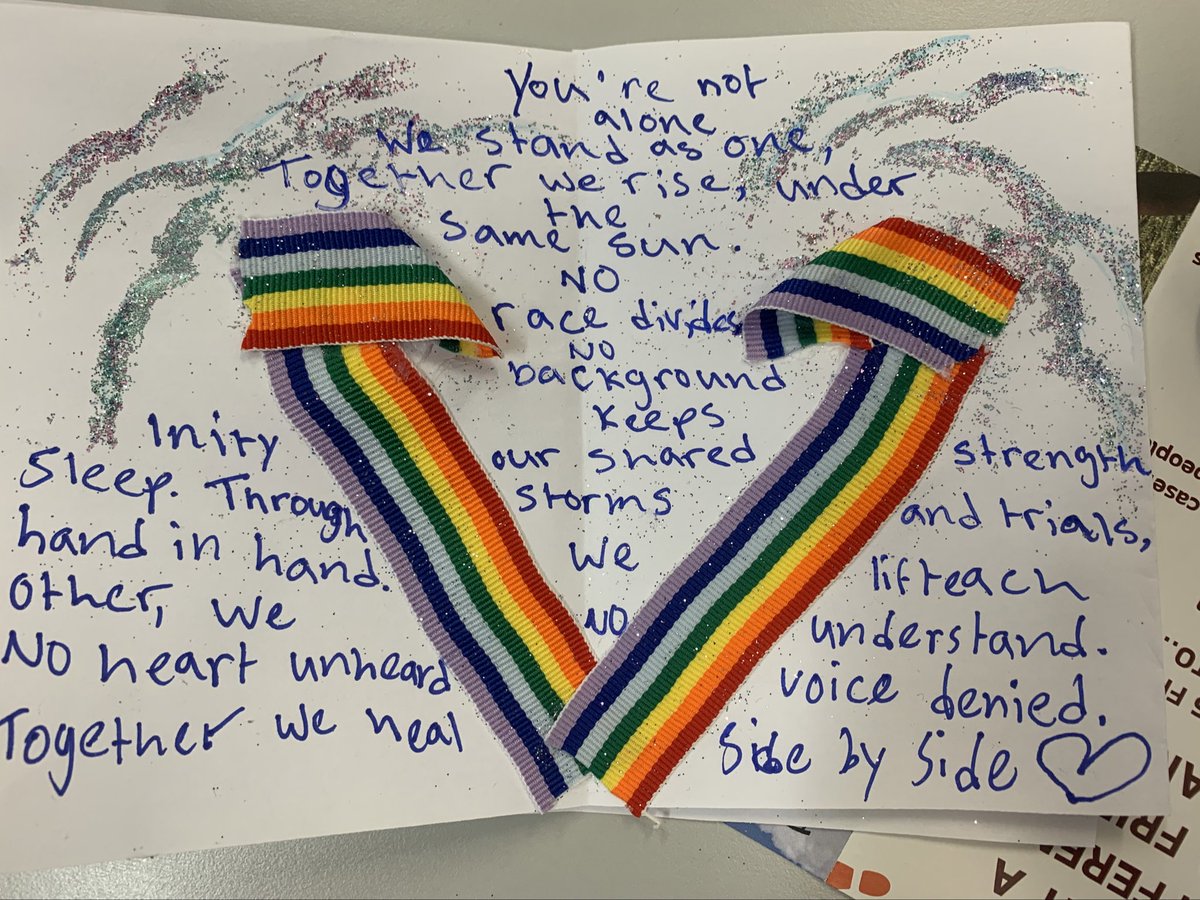 You're not
alone
We stand as one,
Together we rise, under
the
same sun.
NO
race divides
NO
background
keeps
Inity our shared strength
Sleep. Through storms and trials,
hand in hand. We lift each
Other, we understand.
No heart unheard NO voice denied.
Together we heal Side by Side